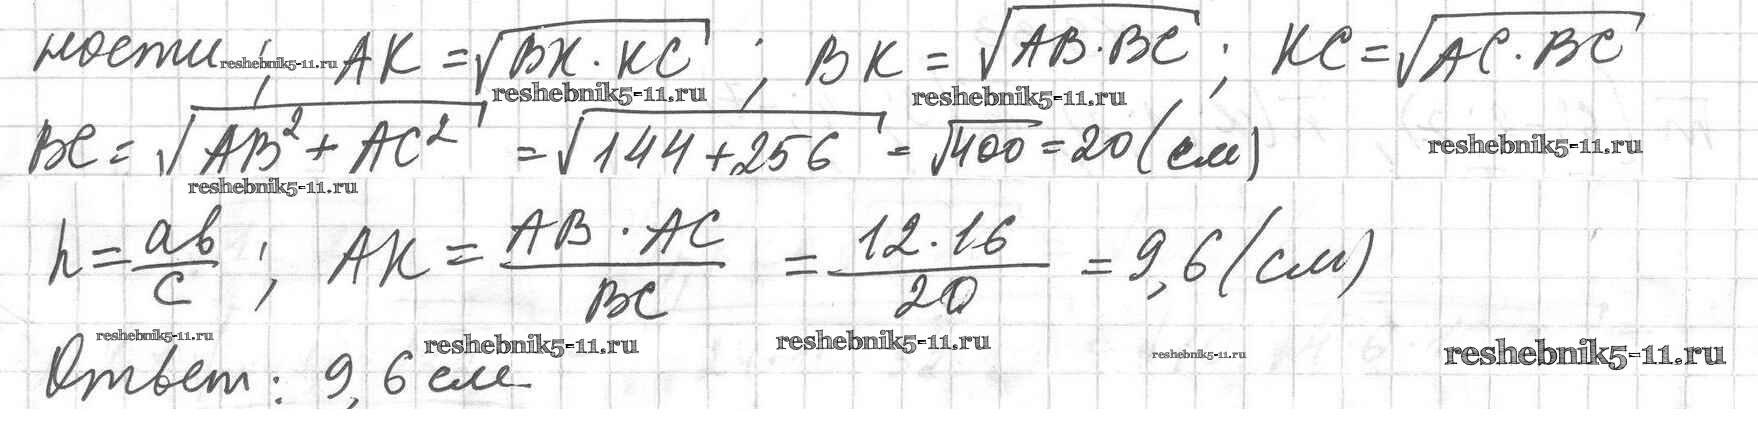 ности; AK = √BK · KC; BK = √AB · BC; KC = √AC · BC
reshebnik5-11.ru reshebnik5-11.ru reshebnik5-11.ru
BC = √AB² + AC² = √144 + 256 = √400 = 20 (см)
reshebnik5-11.ru reshebnik5-11.ru
h = ab/c; AK = AB · AC/BC = 12 · 16/20 = 9,6 (см)
reshebnik5-11.ru reshebnik5-11.ru reshebnik5-11.ru reshebnik5-11.ru reshebnik5-11.ru
Ответ: 9,6 см